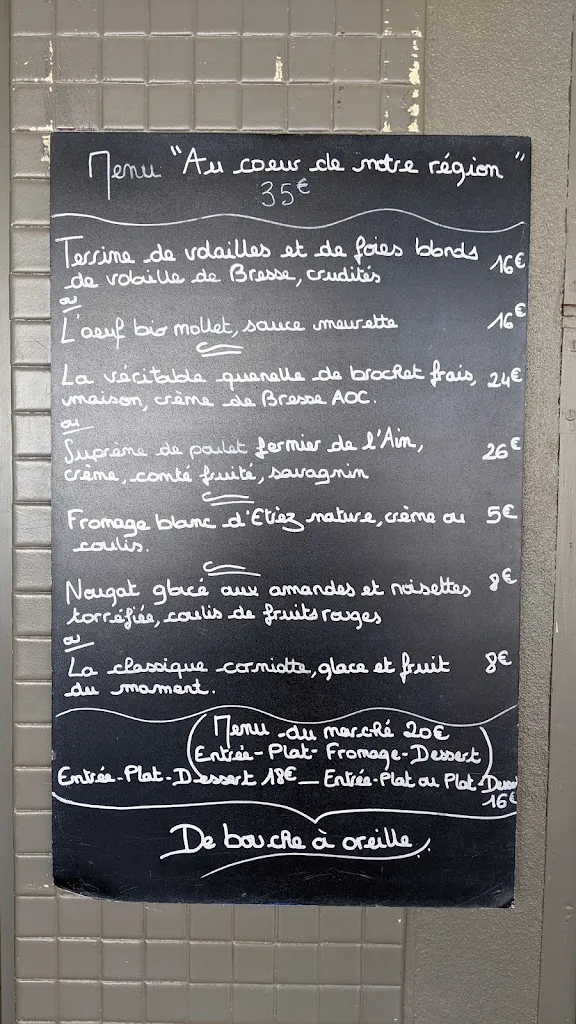 Menu "Au coeur de notre région"
35€
Terrine de volailles et de foies blonds
de volaille de Bresse, crudités 16€
ou
L'oeuf bio mollet, sauce meurette 16€
La véritable quenelle de brochet frais, 24€
maison, crème de Bresse AOC.
ou
Suprème de poulet fermier de l'Ain, 26€
crème, comté fruité, savagnin
Fromage blanc d'Etrez nature, crème ou 5€
coulis.
Nougat glacé aux amandes et noisettes 8€
torréfiée, coulis de fruits rouges
ou
La classique corniotte, glace et fruit 8€
du moment.
Menu du marché 20€
(Entrée-Plat-Fromage-Dessert)
Entrée-Plat-Dessert 18€ - Entrée-Plat ou Plat-Dessert
16€
De bouche à oreille.